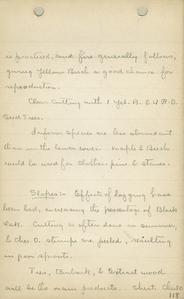 is practiced, and fire generally follows,
giving Yellow Birch a good chance for
reproduction.
Clear Cutting with 1 Yel. B. & 4 R.O.
Seed Trees.
Inferior species are less abundant
than in the lower cover. Maple & Birch
could be used for charcoal, pins & staves.
Slopes:- Effects of logging have
been bad, increasing the percentage of Black
Oak. Cutting is often done in summer,
& Ches. O. stumps are peeled, resulting
in poor sprouts.
Ties, Tanbark, & Extract wood
will be the main products. Chest. Ches. O.